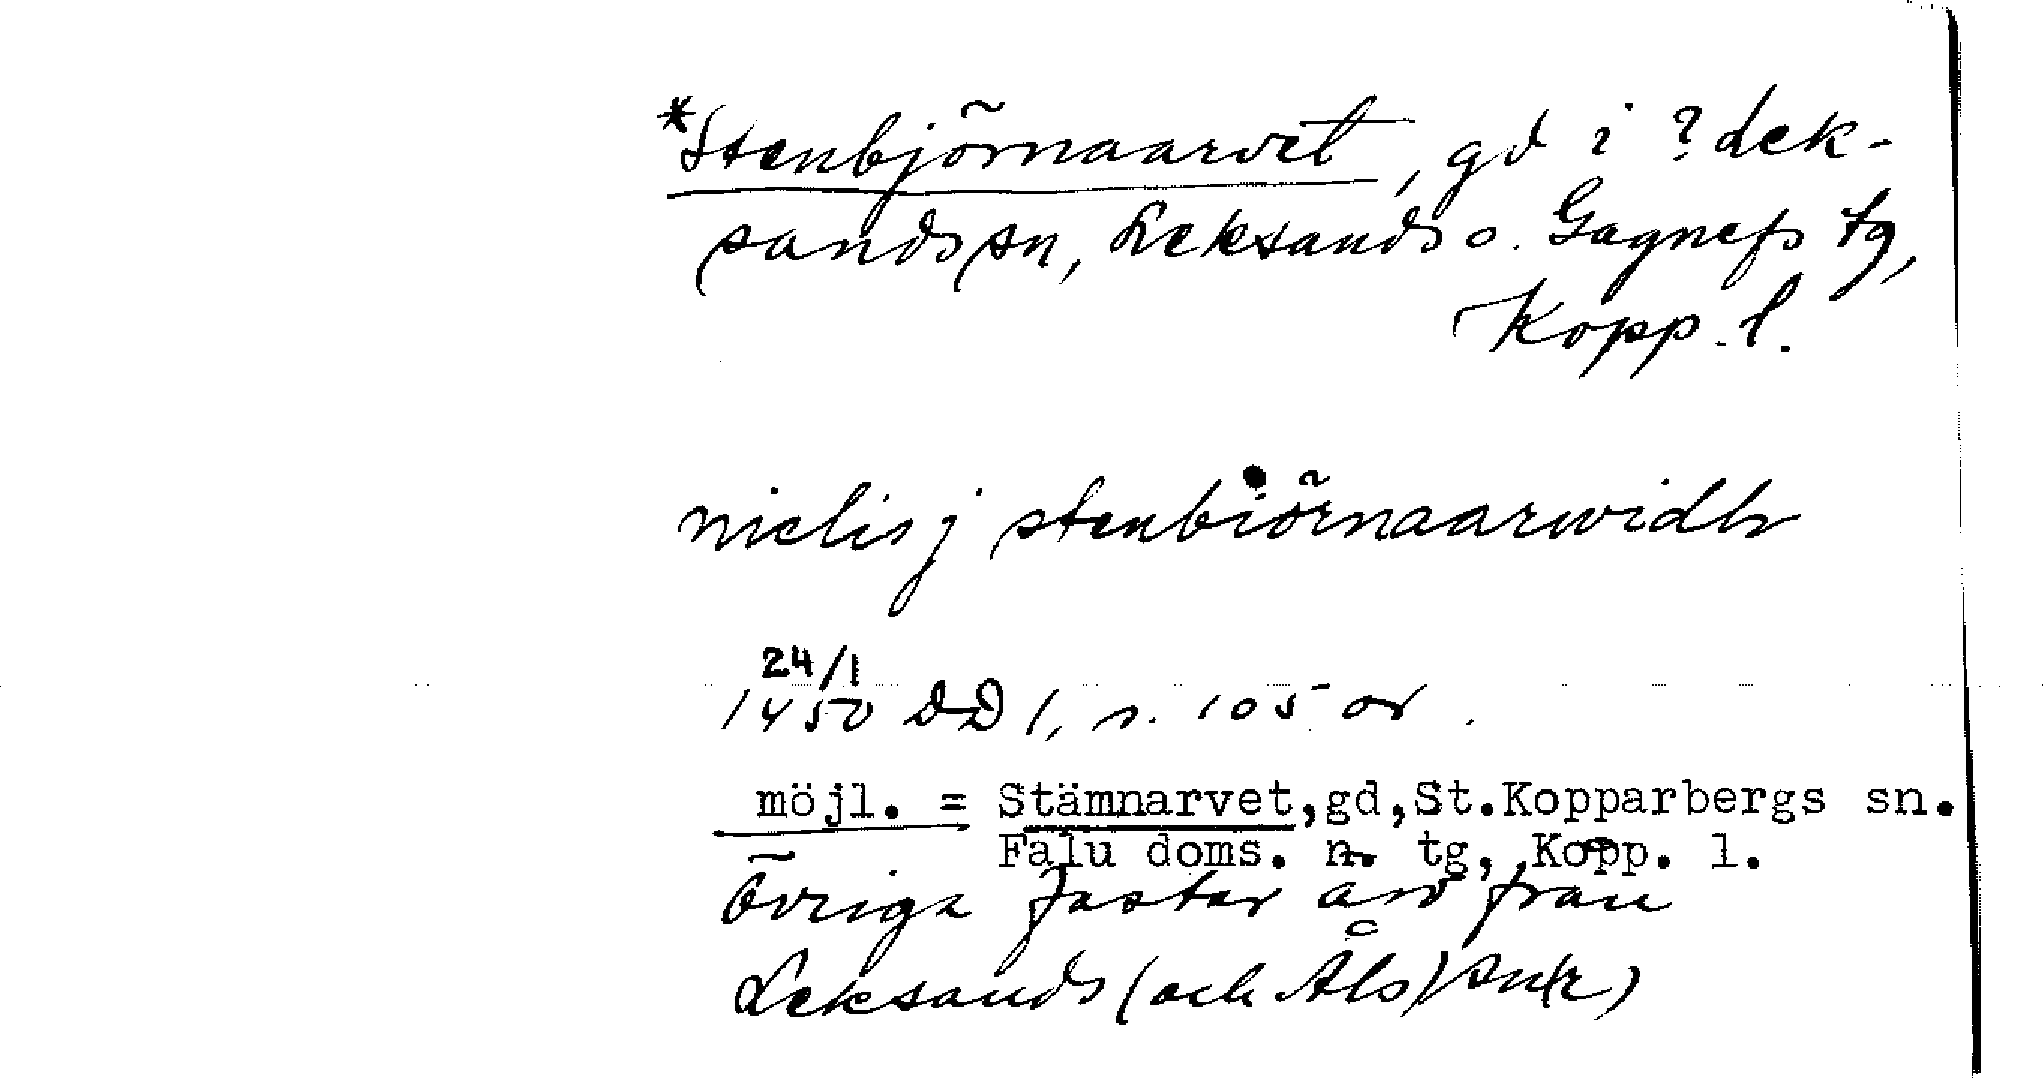 *Stenbjörnaarvet, gd i ? Lek-
sands sn, Leksands o. Gagnefs tg,
Kopp. l.
nielis j stenbiörnaarwidh
24/1
1450 DD 1, s. 105 or.
möjl. = Stämnarvet,gd,St.Kopparbergs sn.
Falu doms. n. tg, Kopp. l.
övriga fastar äro från
Leksands (och Åls) sn(r)